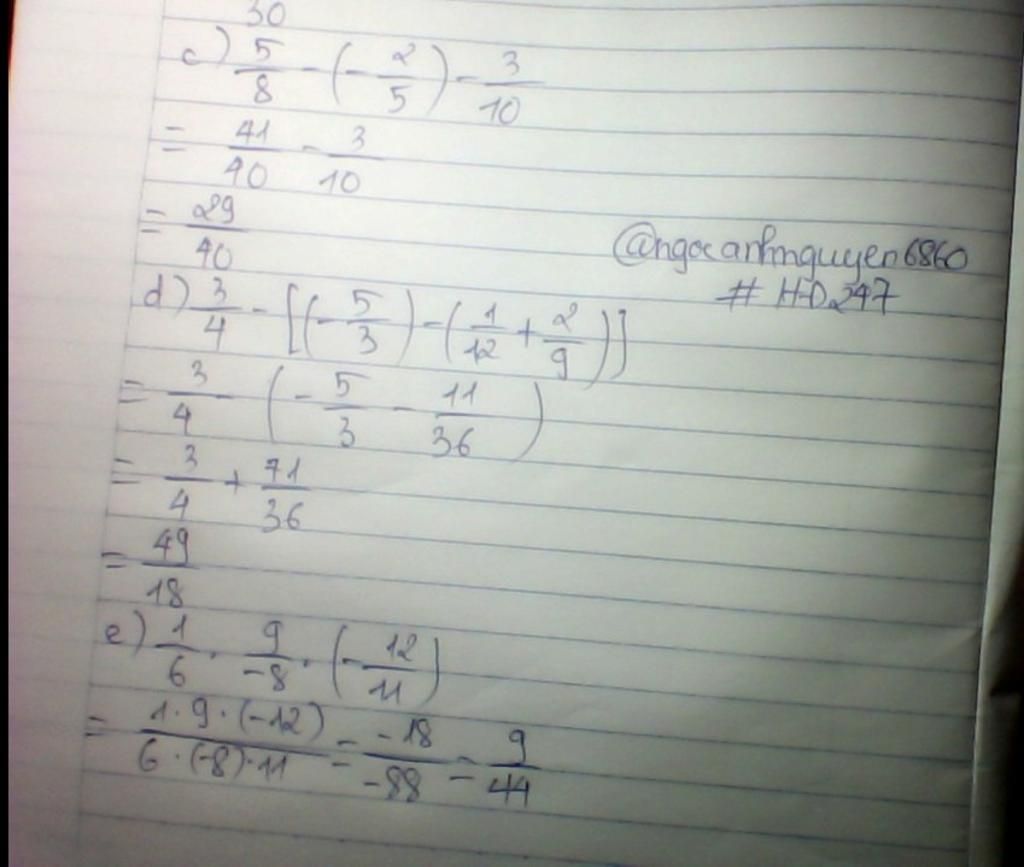 30
c) 5/8 - (- 2/5) - 3/10
= 41/40 - 3/10
= 29/40
@ngocanhnguyen6860
# H-D247
d) 3/4 - [(- 5/3) - (1/12 + 2/9)]
= 3/4 - (- 5/3 - 11/36)
= 3/4 + 71/36
= 49/18
e) 1/6 . 9/-8 . (- 12/11)
= 1.9.(-12)/6.(-8).11 = -18/-88 = 9/44